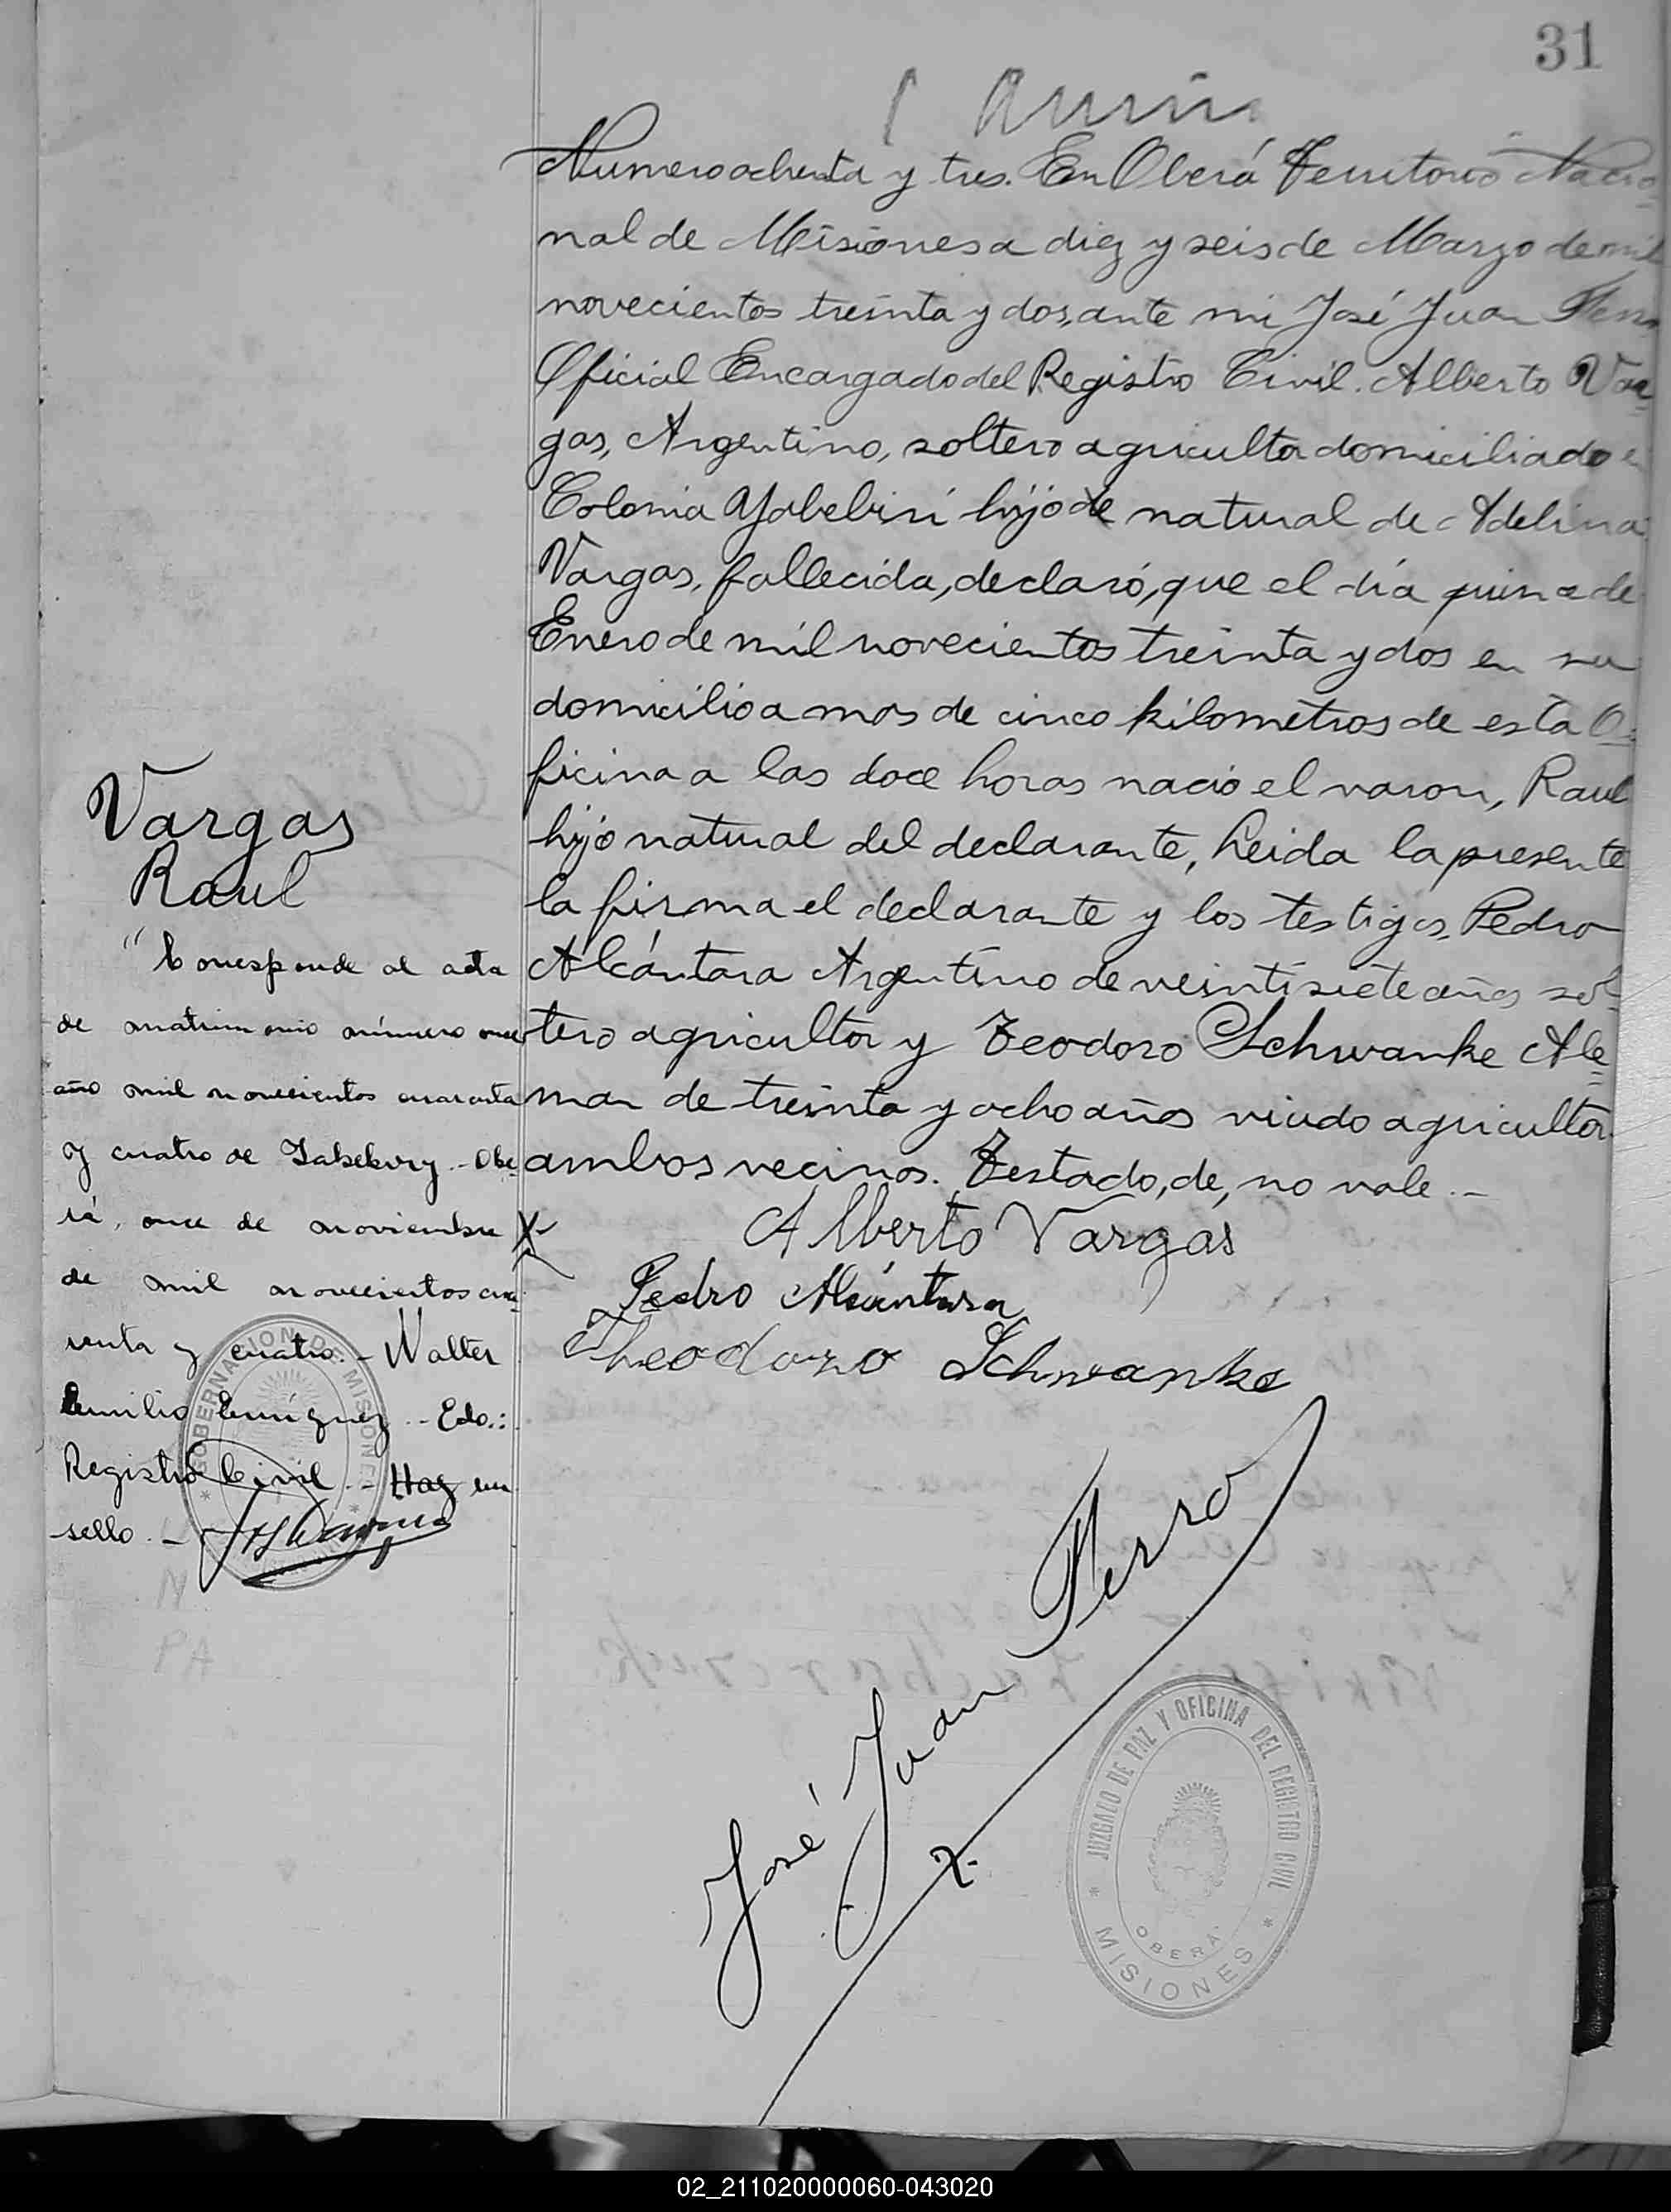 31
Numero ochenta y tres. En Oberá Territorio Nacio-
nal de Misiones a diez y seis de Marzo de mil
novecientos treinta y dos, ante mi José Juan Ferro
Oficial Encargado del Registro Civil. Alberto Var-
gas, Argentino, soltero agricultor domiciliado en
Colonia Yabebiri hijo de natural de Adelina
Vargas, fallecida, declaró, que el día quince de
Enero de mil novecientos treinta y dos en su
domicilio a mas de cinco kilometros de esta O=
ficina a las doce horas nació el varon, Raul
hijo natural del declarante, Leida la presente
la firma el declarante y los testigos, Pedro
Alcántara Argentino de veintisiete años sol-
tero agricultor y Teodoro Schwanke Ale=
man de treinta y ocho años viudo agricultor
ambos vecinos. Testado, de, no vale.-
Alberto Vargas
Pedro Alcántara
Theodoro Schwanke
José Juan Ferro
JUZGADO DE PAZ Y OFICINA DEL REGISTRO CIVIL
OBERÁ
* MISIONES *
Vargas
Raul
"Corresponde al acta
de matrimonio número once
año mil novecientos cuarenta
y cuatro de Yabebiry.- Obe-
rá, once de noviembre
de mil novecientos cua-
renta y cuatro.- Walter
Emilio .- Edo.:
Registro Civil.- Hay un
sello.-
GOBERNACION DE MISIONES
N
PA
02_211020000060-043020